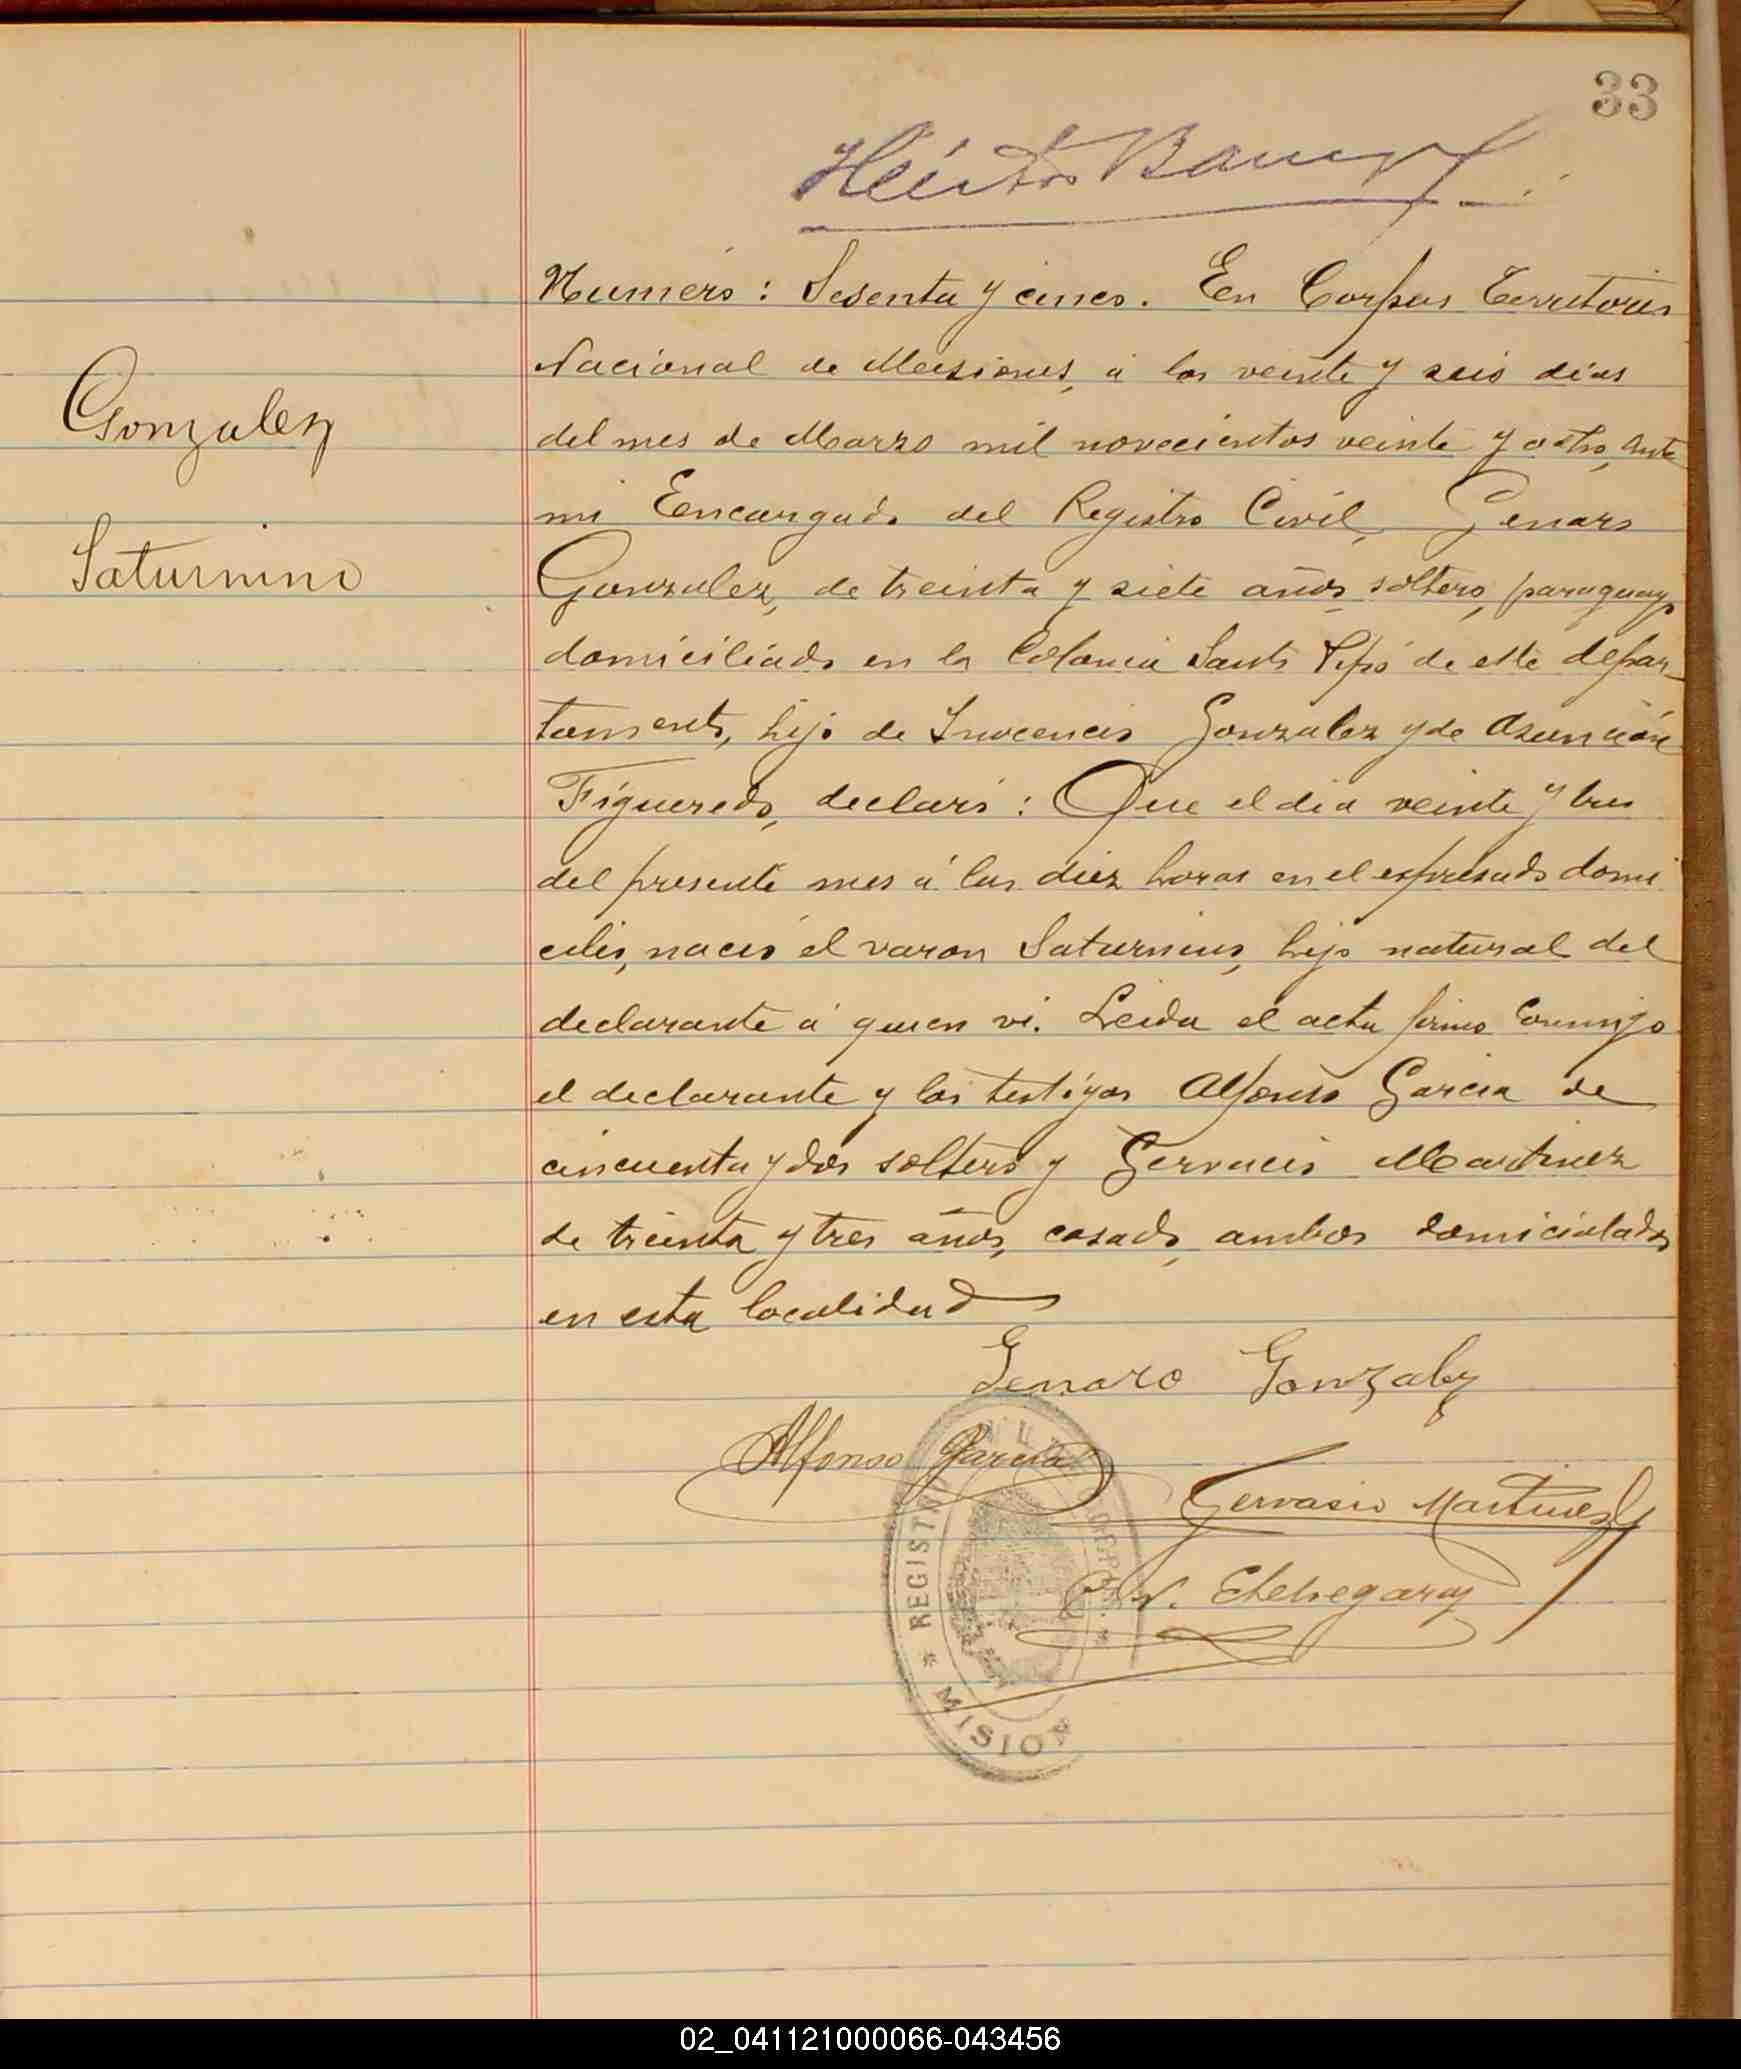 33
Héctor Barreyro
Numero: Sesenta y cinco. En Corpus Territorio
Nacional de Misiones, á los veinte y seis dias
Gonzalez
del mes de Marzo mil novecientos veinte y ocho, ante
mi Encargado del Registro Civil, Genaro
Saturnino
Gonzalez, de treinta y siete años, soltero, paraguayo
domiciliado en la Colonia Santo Pipó de este depar-
tamento, hijo de Inocencio Gonzalez y de Asunción
Figueredo, declaró: Que el dia veinte y tres
del presente mes á las diez horas en el expresado domi
cilio, nació el varon Saturnino, hijo natural del
declarante á quien vi. Leida el acta firmo conmigo
el declarante y los testigos Alfonso Garcia de
cincuenta y dos soltero y Gervacio Martinez
de treinta y tres años, casado, ambos domiciolados
en esta localidad
Genaro Gonzalez
Alfonso Garcia
Gervasio Martinez
N. Etchegaray
REGISTRO CIVIL CORPUS * MISIONES *
02_041121000066-043456